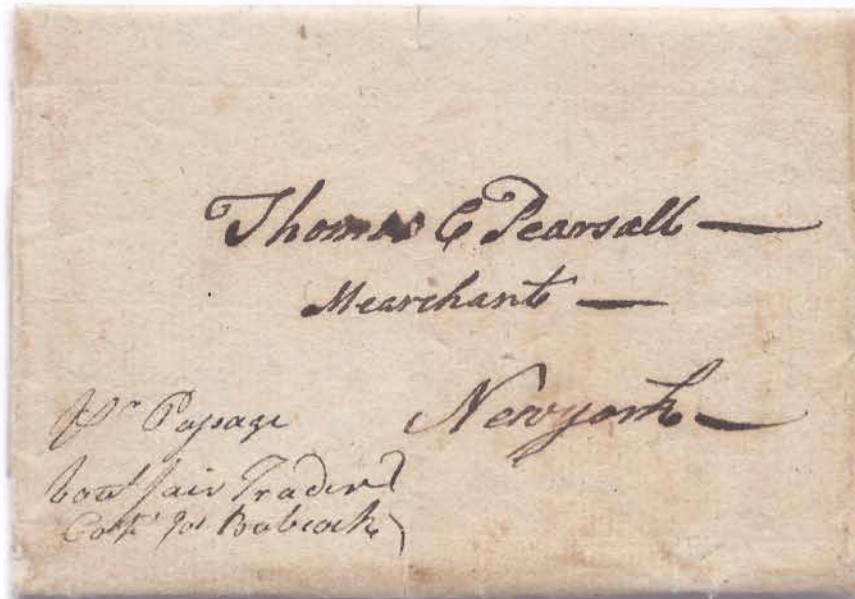 Thomas C Pearsall —
Mearchant —
Newyork —
Pr Passage
boat fair Trader
Capt Jos Babcock